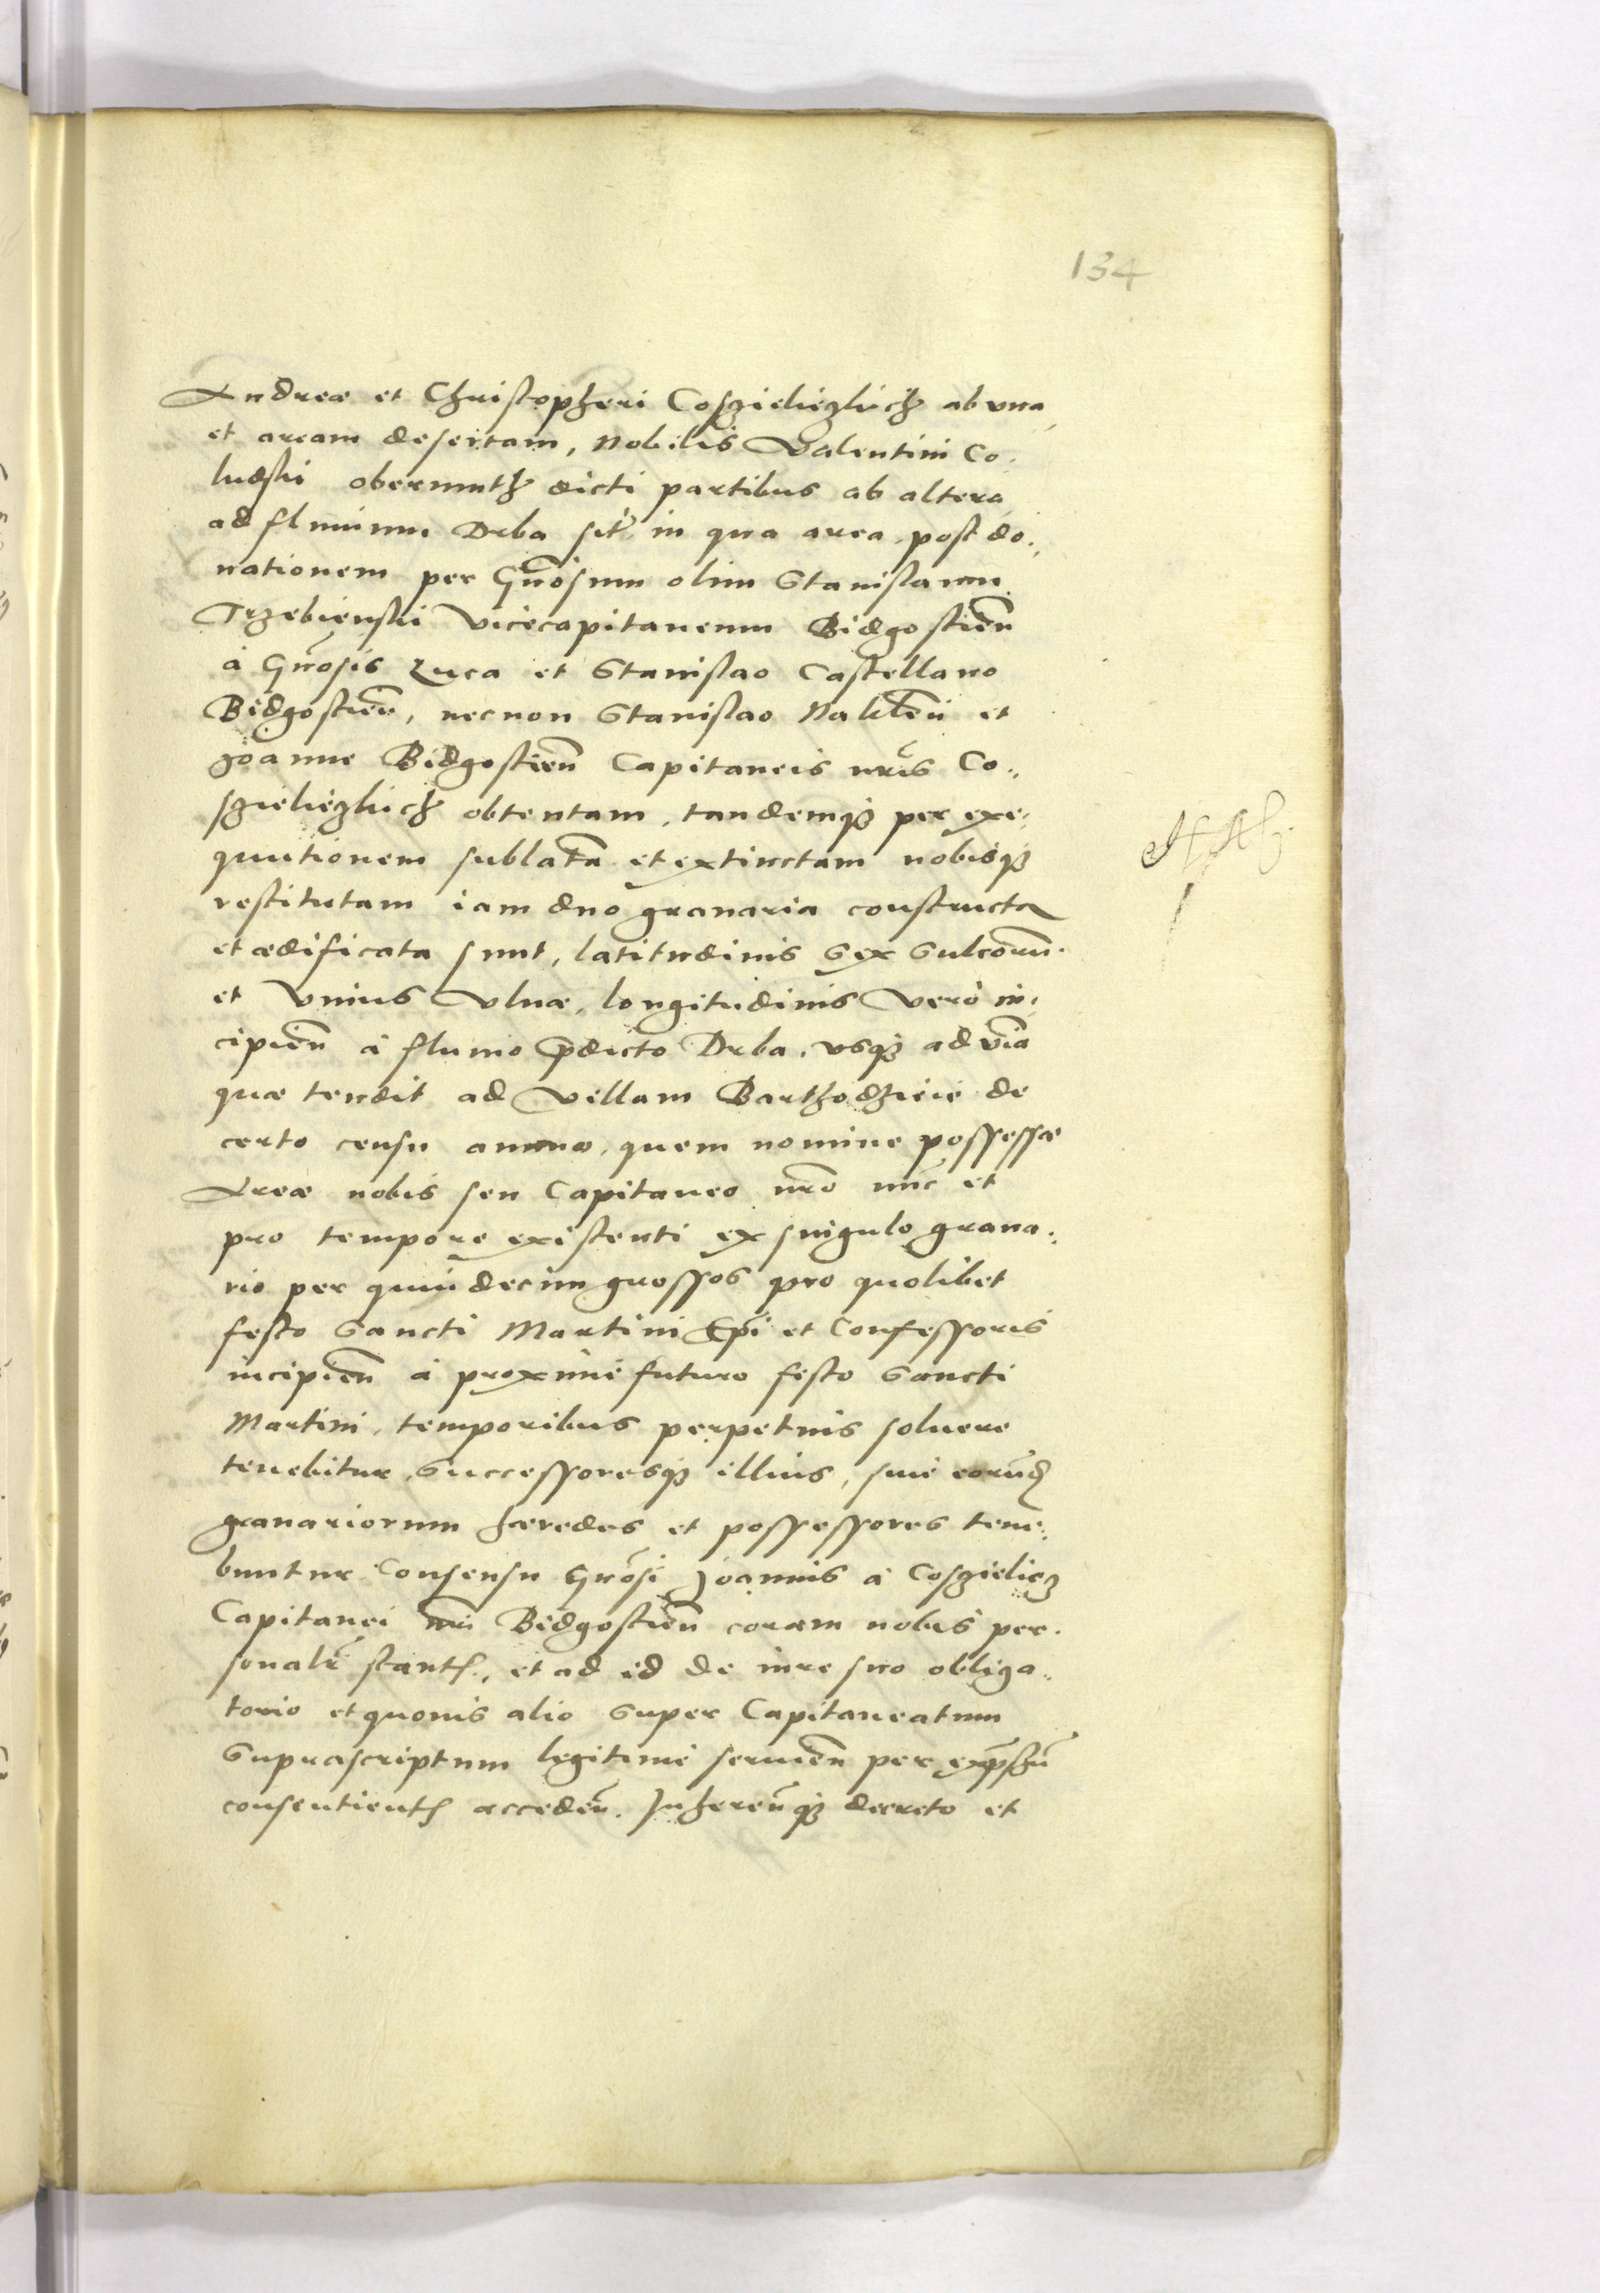 134
Andreæ et Christopheri Cosczieliezkich ab una,
et aream desertam, Nobilis Valentini Co-
ludski obermuth dicti partibus ab altera,
ad flumum Drba sit̃ in qua area post do-
nationem per Gnõsum olim Stanislaum
Trzebienski Vicecapitaneum Bidgostien̄
à Gnõsis Luca et Stanislao Castellano
Bidgostien̄, necnon Stanislao Naklen̄ et
Joanne Bidgostien̄ Capitaneis nr̃is Co-
sczieliezkich obtentam, tandemqꝫ per exe-
quutionem sublatā et extinctam nobisqꝫ
restitutam iam duo granaria constructa
et ædificata sunt, latitudinis Sex Sulcorum̄
et Vnius Vlnæ, longitudinis Vero in-
cipien̄ à fluuio p̄dicto Drba, vsqꝫ ad viā
quæ tendit ad Villam Barthodzieie de
certo censu annuo, quem nomine possessæ
Areæ nobis seu Capitaneo nr̃o nūc et
pro tempore existenti ex singulo grana-
rio per quindecim grossos pro quolibet
festo Sancti Martini Ep̄i et Confessoris
incipien̄ à proximè futuro festo Sancti
Martini, temporibus perpetuis soluere
tenebitur, Successoresqꝫ illius, siue eorūd
granariorum hæredes et possessores tene-
buntur Consensu Gnõsi Joannis à Cosczieliecz
Capitanei nr̃i Bidgostien̄ coram nobis per-
sonalr̃ stant, et ad id de iure suo obliga-
torio et quouis alio Super Capitaneatum
Suprascriptum legitimè seruien̄ per exp̄ssū
consentient acceden̄. Inheren̄qꝫ decreto et